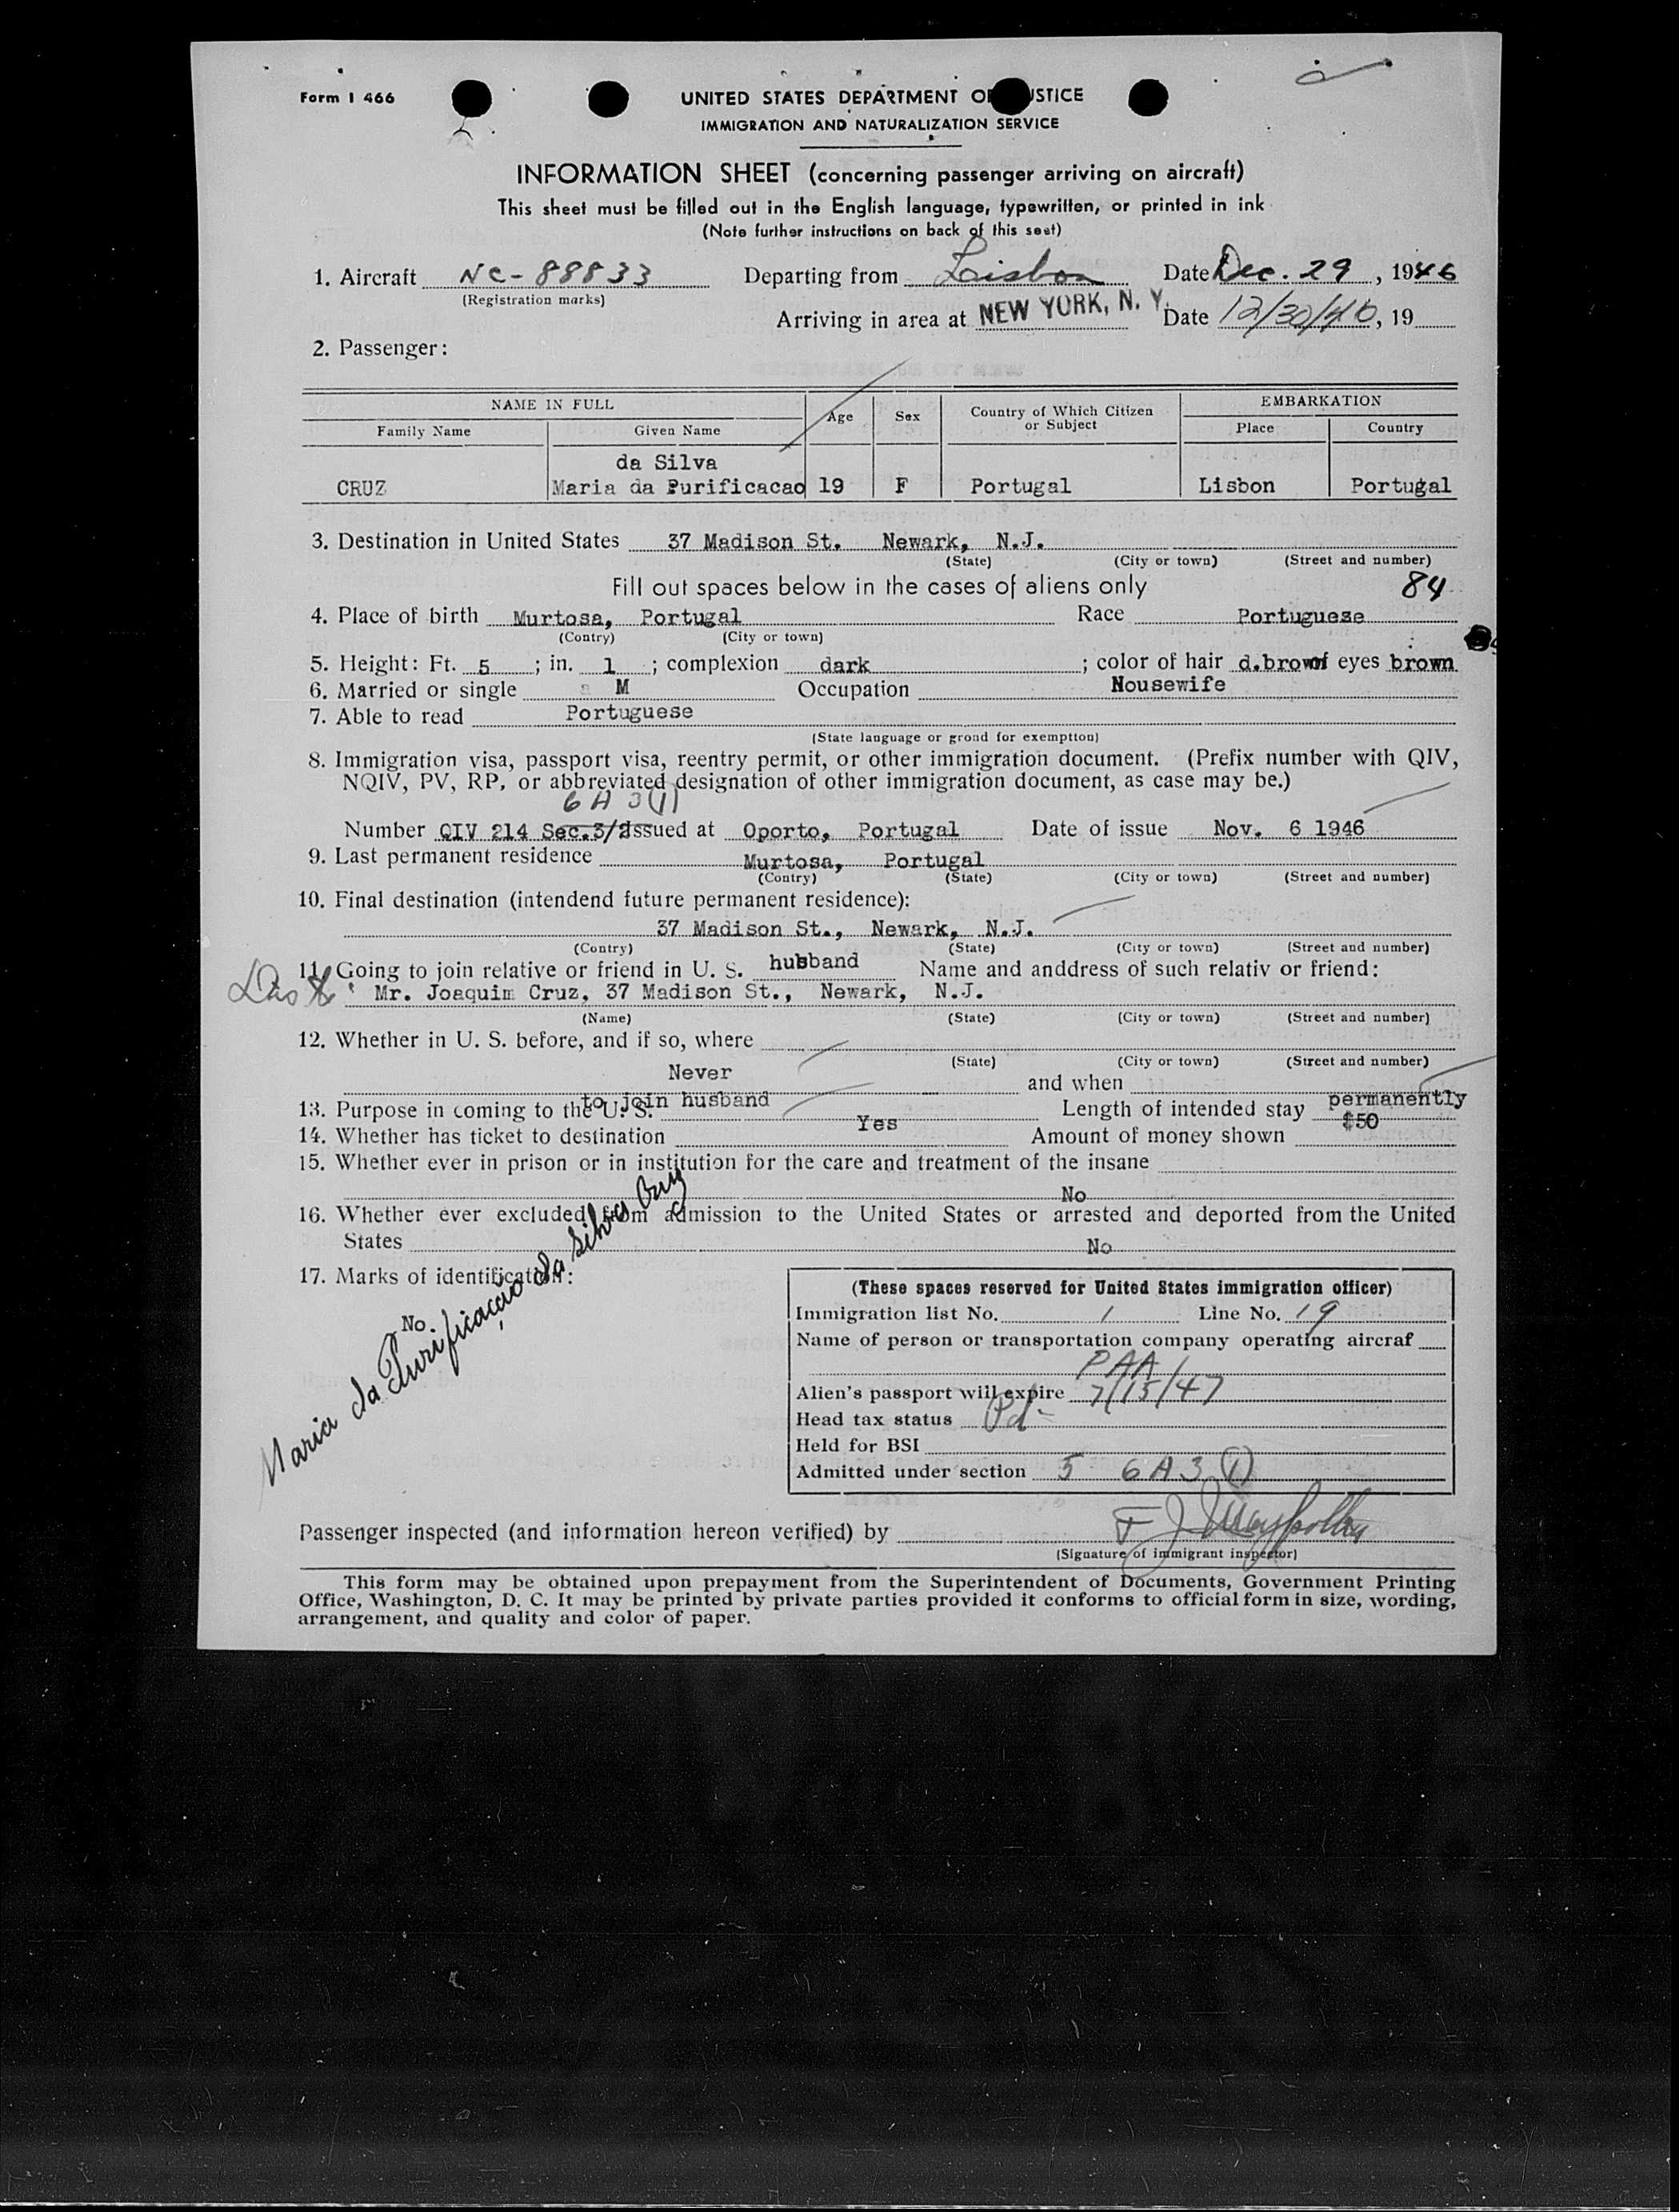 Form I 466
UNITED STATES DEPARTMENT OF JUSTICE
IMMIGRATION AND NATURALIZATION SERVICE
INFORMATION SHEET (concerning passenger arriving on aircraft)
This sheet must be filled out in the English language, typewritten, or printed in ink
(Note further instructions on back of this seet)
1. Aircraft NC-88833 Departing from Lisbon Date Dec. 29, 1946
(Registration marks)
Arriving in area at NEW YORK, N. Y. Date 12/30/46, 19
2. Passenger:
NAME IN FULL Age Sex Country of Which Citizen or Subject EMBARKATION
Family Name Given Name Place Country
da Silva
CRUZ Maria da Purificacao 19 F Portugal Lisbon Portugal
3. Destination in United States 37 Madison St. Newark, N.J.
(State) (City or town) (Street and number)
Fill out spaces below in the cases of aliens only 84
4. Place of birth Murtosa, Portugal Race Portuguese
(Contry) (City or town)
5. Height: Ft. 5 ; in. 1 ; complexion dark ; color of hair d.brown of eyes brown
6. Married or single M Occupation Housewife
7. Able to read Portuguese
(State language or grond for exemption)
8. Immigration visa, passport visa, reentry permit, or other immigration document. (Prefix number with QIV,
NQIV, PV, RP, or abbreviated designation of other immigration document, as case may be.)
6 A 3 (1)
Number QIV 214 Sec.3/2 issued at Oporto, Portugal Date of issue Nov. 6 1946
9. Last permanent residence Murtosa, Portugal
(Contry) (State) (City or town) (Street and number)
10. Final destination (intendend future permanent residence):
37 Madison St., Newark, N.J.
(Contry) (State) (City or town) (Street and number)
11. Going to join relative or friend in U. S. husband Name and anddress of such relativ or friend:
Mr. Joaquim Cruz, 37 Madison St., Newark, N.J.
(Name) (State) (City or town) (Street and number)
12. Whether in U. S. before, and if so, where
(State) (City or town) (Street and number)
Never and when
13. Purpose in coming to the U. S. to join husband Length of intended stay permanently
14. Whether has ticket to destination Yes Amount of money shown $50
15. Whether ever in prison or in institution for the care and treatment of the insane
No
16. Whether ever excluded from admission to the United States or arrested and deported from the United
States No
17. Marks of identification:
No
Maria da Purificação da Silva Cruz
(These spaces reserved for United States immigration officer)
Immigration list No. 1 Line No. 19
Name of person or transportation company operating aircraf
PAA
Alien's passport will expire 7/15/47
Head tax status Pd-
Held for BSI
Admitted under section 5 6 A 3 (1)
Passenger inspected (and information hereon verified) by
(Signature of immigrant inspector)
This form may be obtained upon prepayment from the Superintendent of Documents, Government Printing
Office, Washington, D. C. It may be printed by private parties provided it conforms to official form in size, wording,
arrangement, and quality and color of paper.